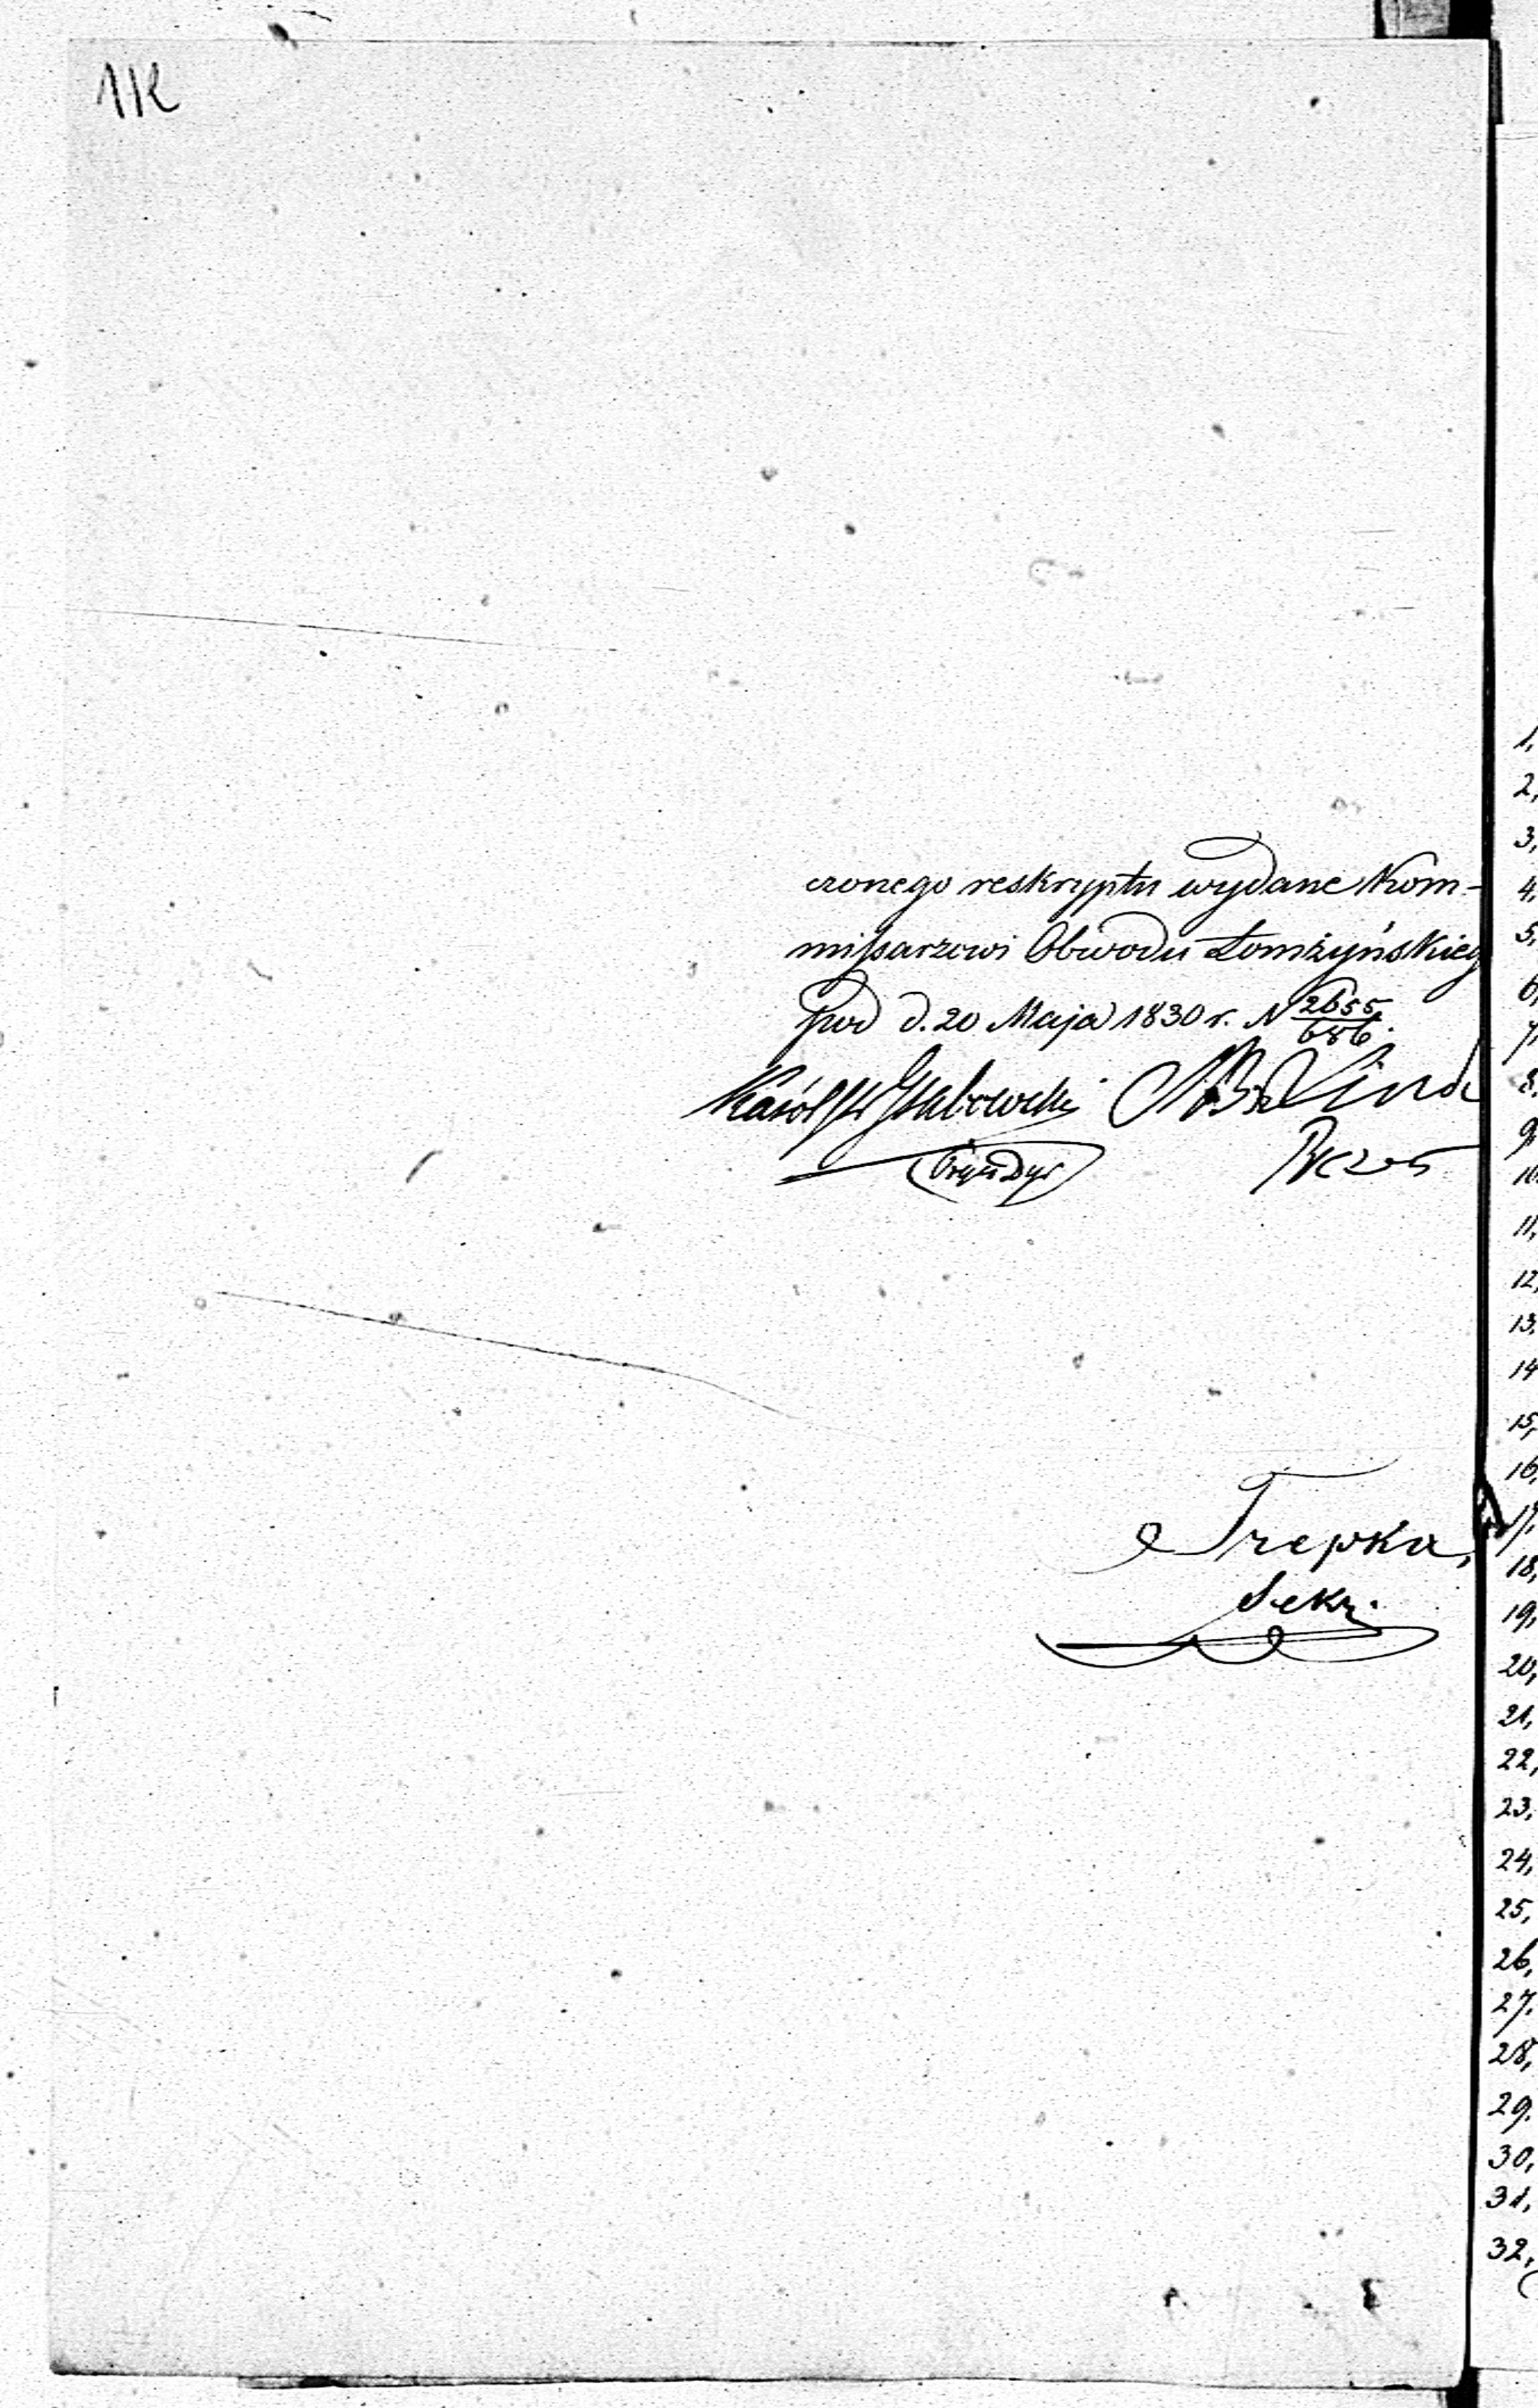 czonego reskryptu wydane Kom-
missarzowi Obwodu Łomżyńskieg
pod d. 20 Maja 1830 r. N 2655/686.
Karól
Trepka,
Sekr.
1,
2,
3,
4,
5,
6,
7,
8.
9,
10.
11,
12,
13.
14
15,
16,
17.
18,
19,
20,
21,
22,
23,
24,
25,
26,
27.
28,
29.
30,
31,
32,